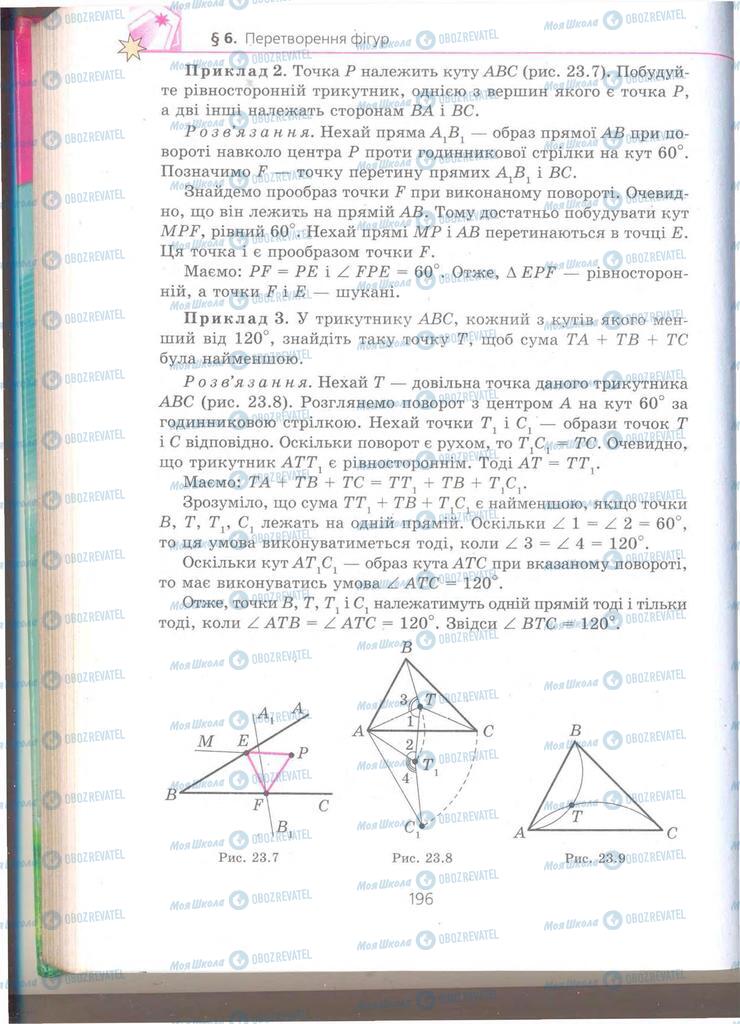 § 6. Перетворення фігур
Приклад 2. Точка P належить куту ABC (рис. 23.7). Побудуй-
те рівносторонній трикутник, однією з вершин якого є точка P,
а дві інші належать сторонам BA і BC.
Розв'язання. Нехай пряма A₁B₁ — образ прямої AB при по-
вороті навколо центра P проти годинникової стрілки на кут 60°.
Позначимо F — точку перетину прямих A₁B₁ і BC.
Знайдемо прообраз точки F при виконаному повороті. Очевид-
но, що він лежить на прямій AB. Тому достатньо побудувати кут
MPF, рівний 60°. Нехай прямі MP і AB перетинаються в точці E.
Ця точка і є прообразом точки F.
Маємо: PF = PE і ∠ FPE = 60°. Отже, △ EPF — рівносторон-
ній, а точки F і E — шукані.
Приклад 3. У трикутнику ABC, кожний з кутів якого мен-
ший від 120°, знайдіть таку точку T, щоб сума TA + TB + TC
була найменшою.
Розв'язання. Нехай T — довільна точка даного трикутника
ABC (рис. 23.8). Розглянемо поворот з центром A на кут 60° за
годинниковою стрілкою. Нехай точки T₁ і C₁ — образи точок T
і C відповідно. Оскільки поворот є рухом, то T₁C₁ = TC. Очевидно,
що трикутник ATT₁ є рівностороннім. Тоді AT = TT₁.
Маємо: TA + TB + TC = TT₁ + TB + T₁C₁.
Зрозуміло, що сума TT₁ + TB + T₁C₁ є найменшою, якщо точки
B, T, T₁, C₁ лежать на одній прямій. Оскільки ∠ 1 = ∠ 2 = 60°,
то ця умова виконуватиметься тоді, коли ∠ 3 = ∠ 4 = 120°.
Оскільки кут AT₁C₁ — образ кута ATC при вказаному повороті,
то має виконуватись умова ∠ ATC = 120°.
Отже, точки B, T, T₁ і C₁ належатимуть одній прямій тоді і тільки
тоді, коли ∠ ATB = ∠ ATC = 120°. Звідси ∠ BTC = 120°.
A₁ A
M E P
B F C
B₁
Рис. 23.7
B
3 T
A 1 C
2
T₁
4
C₁
Рис. 23.8
B
T
A C
Рис. 23.9
196